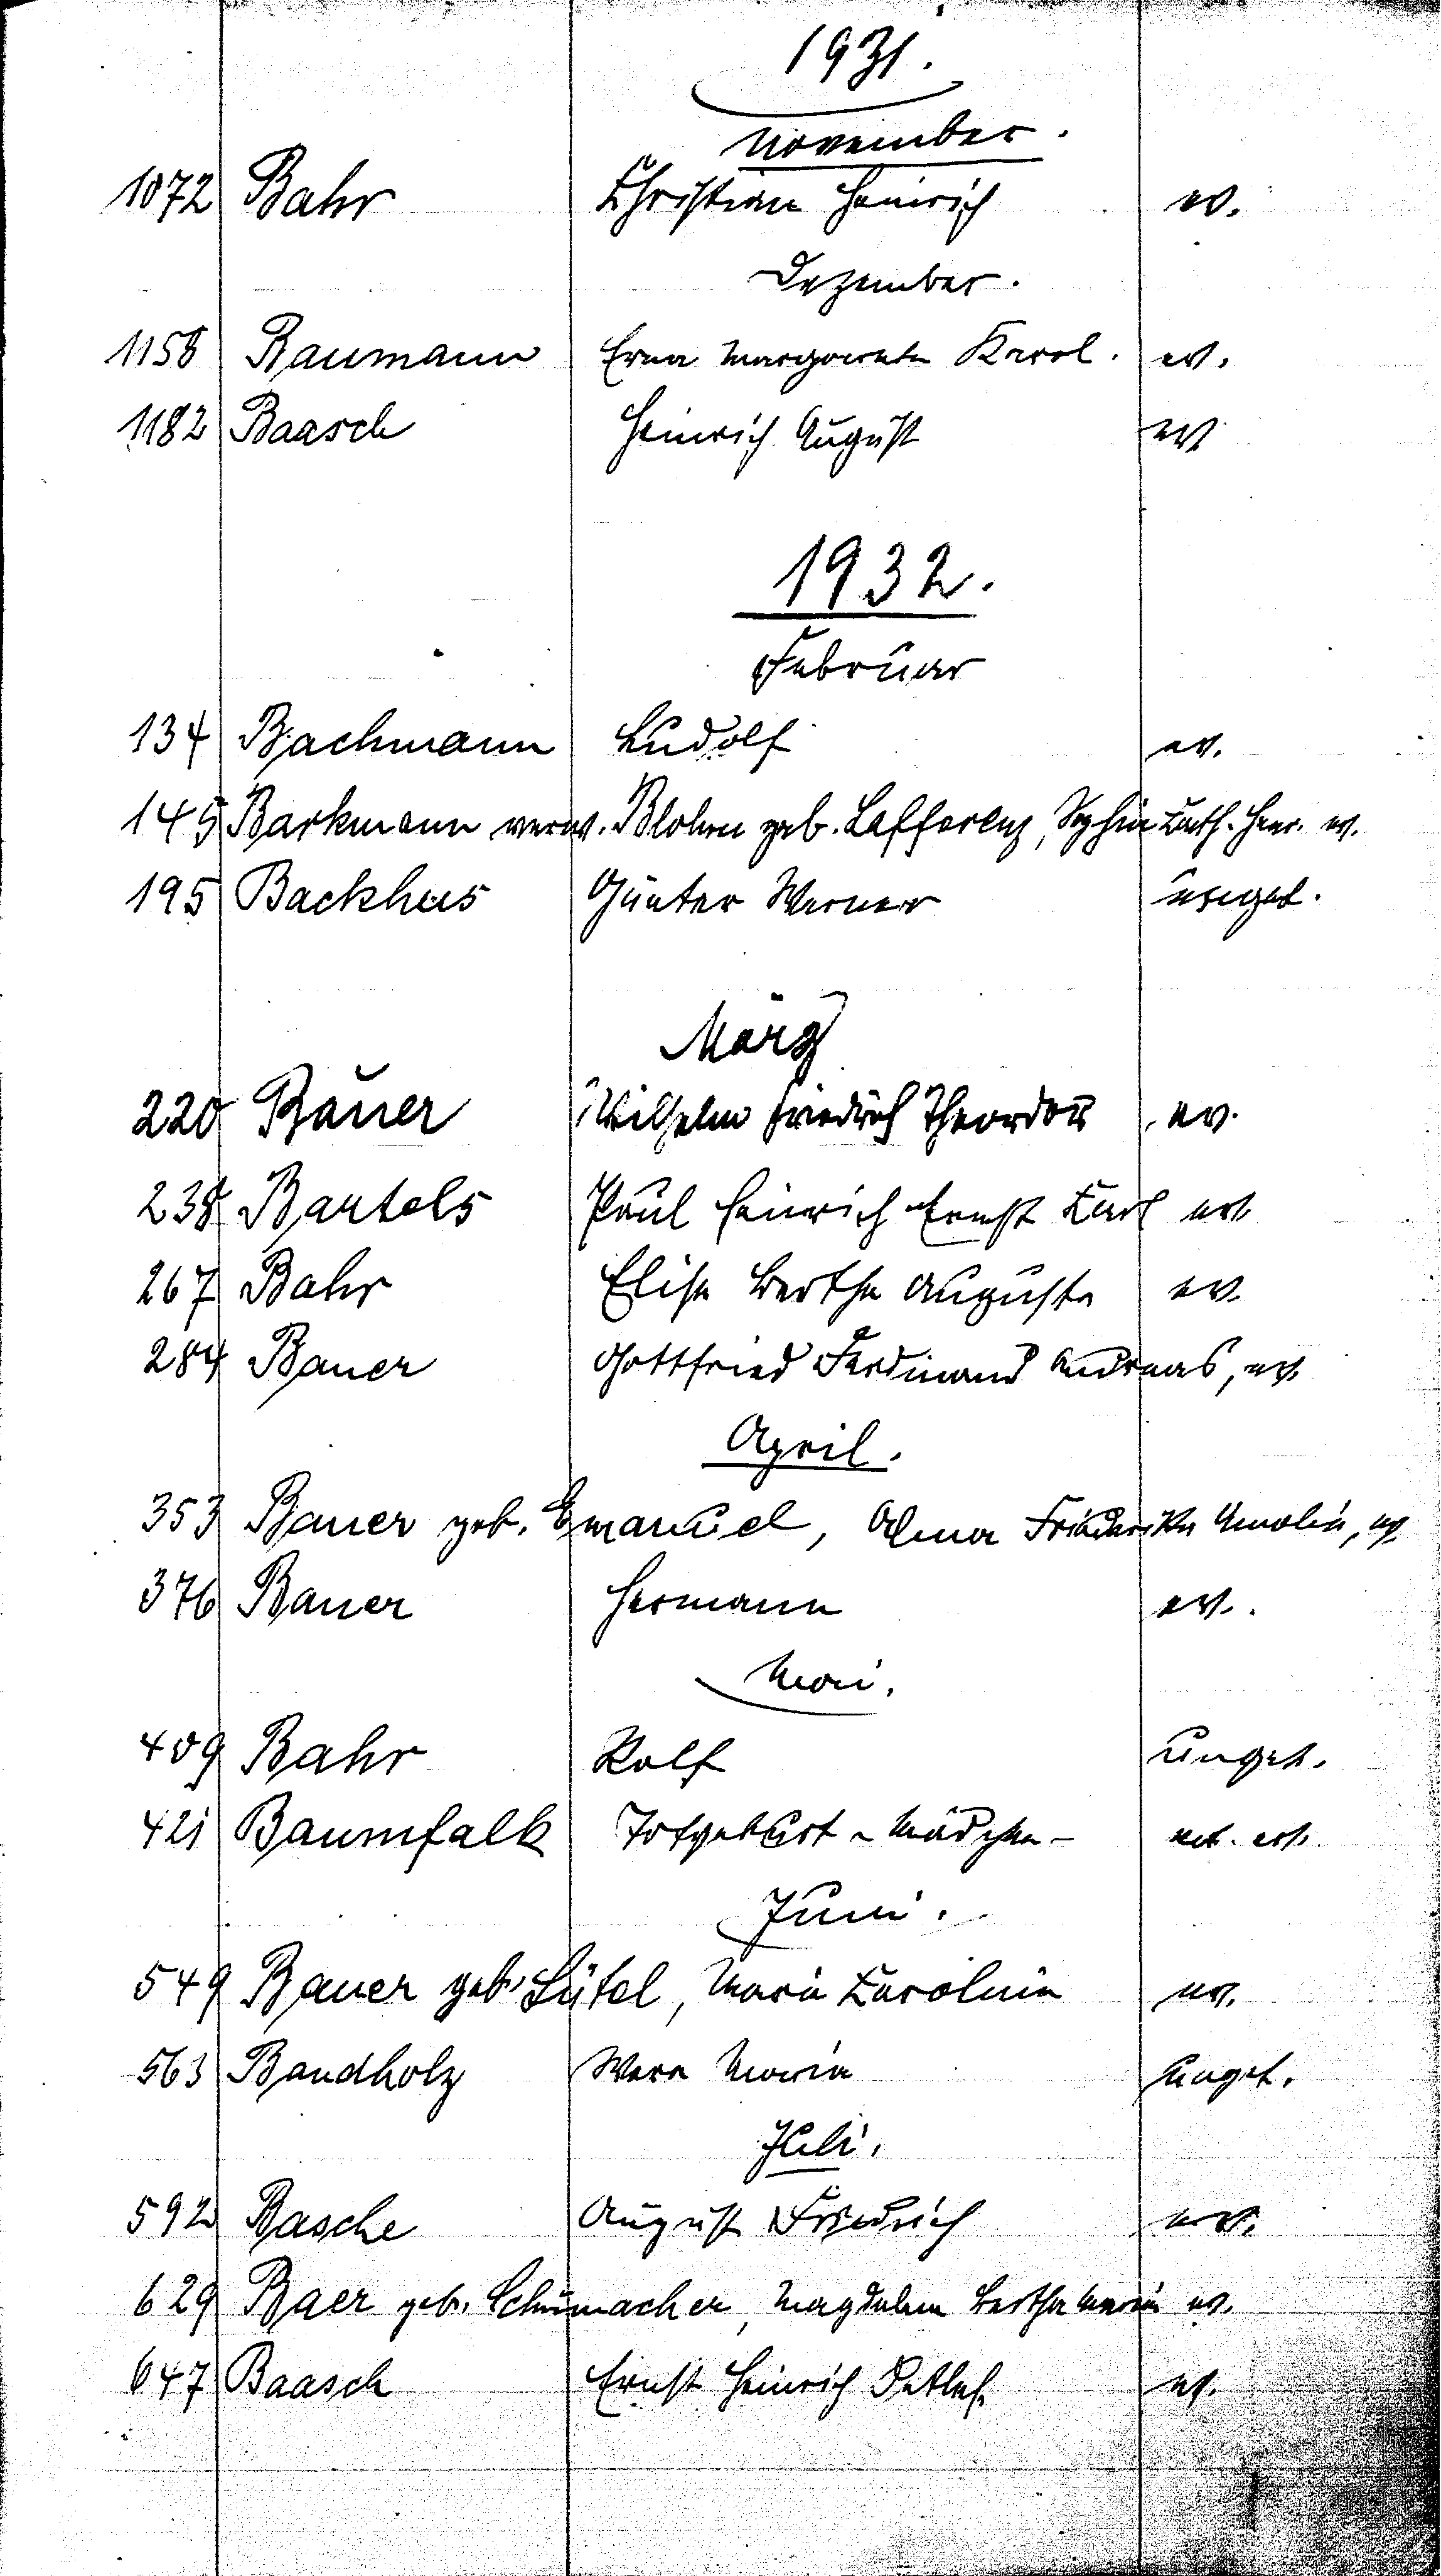 1931.
November.
1072 Bahr Christian Heinrich ev.
Dezember.
1158 Baumann Erna Margareta Karol. ev.
1182 Baasch Heinrich August ev
1932.
Februar
134 Bachmann Rudolf ev.
145 Barkmann verw. Blohm geb. Lafferenz, Sophie Cath. Henr. ev.
195 Backhus Günter Werner unget.
März
220 Bauer Wilhelm Friedrich Theordor ev.
238 Bartels Paul Heinrich Ernst Karl ev.
267 Bahr Elise Bertha Auguste ev.
284 Bauer Gottfried Ferdinand Andreas, ev.
April.
353 Bauer geb. Emanuel, Alma Friederike Amalie, ev.
376 Bauer Hermann ev.
Mai.
409 Bahr Rolf unget.
421 Baumfalk Totgeburt - Mädchen - ev.
Juni.
549 Bauer geb. Lütel, Maria Karoline ev.
563 Bandholz Wera Maria unget.
Juli.
592 Basche August Friedrich ev.
629 Baer geb. Schumacher, Magdalena Bertha Maria ev.
647 Baasch Ernst Heinrich Detlef ev.